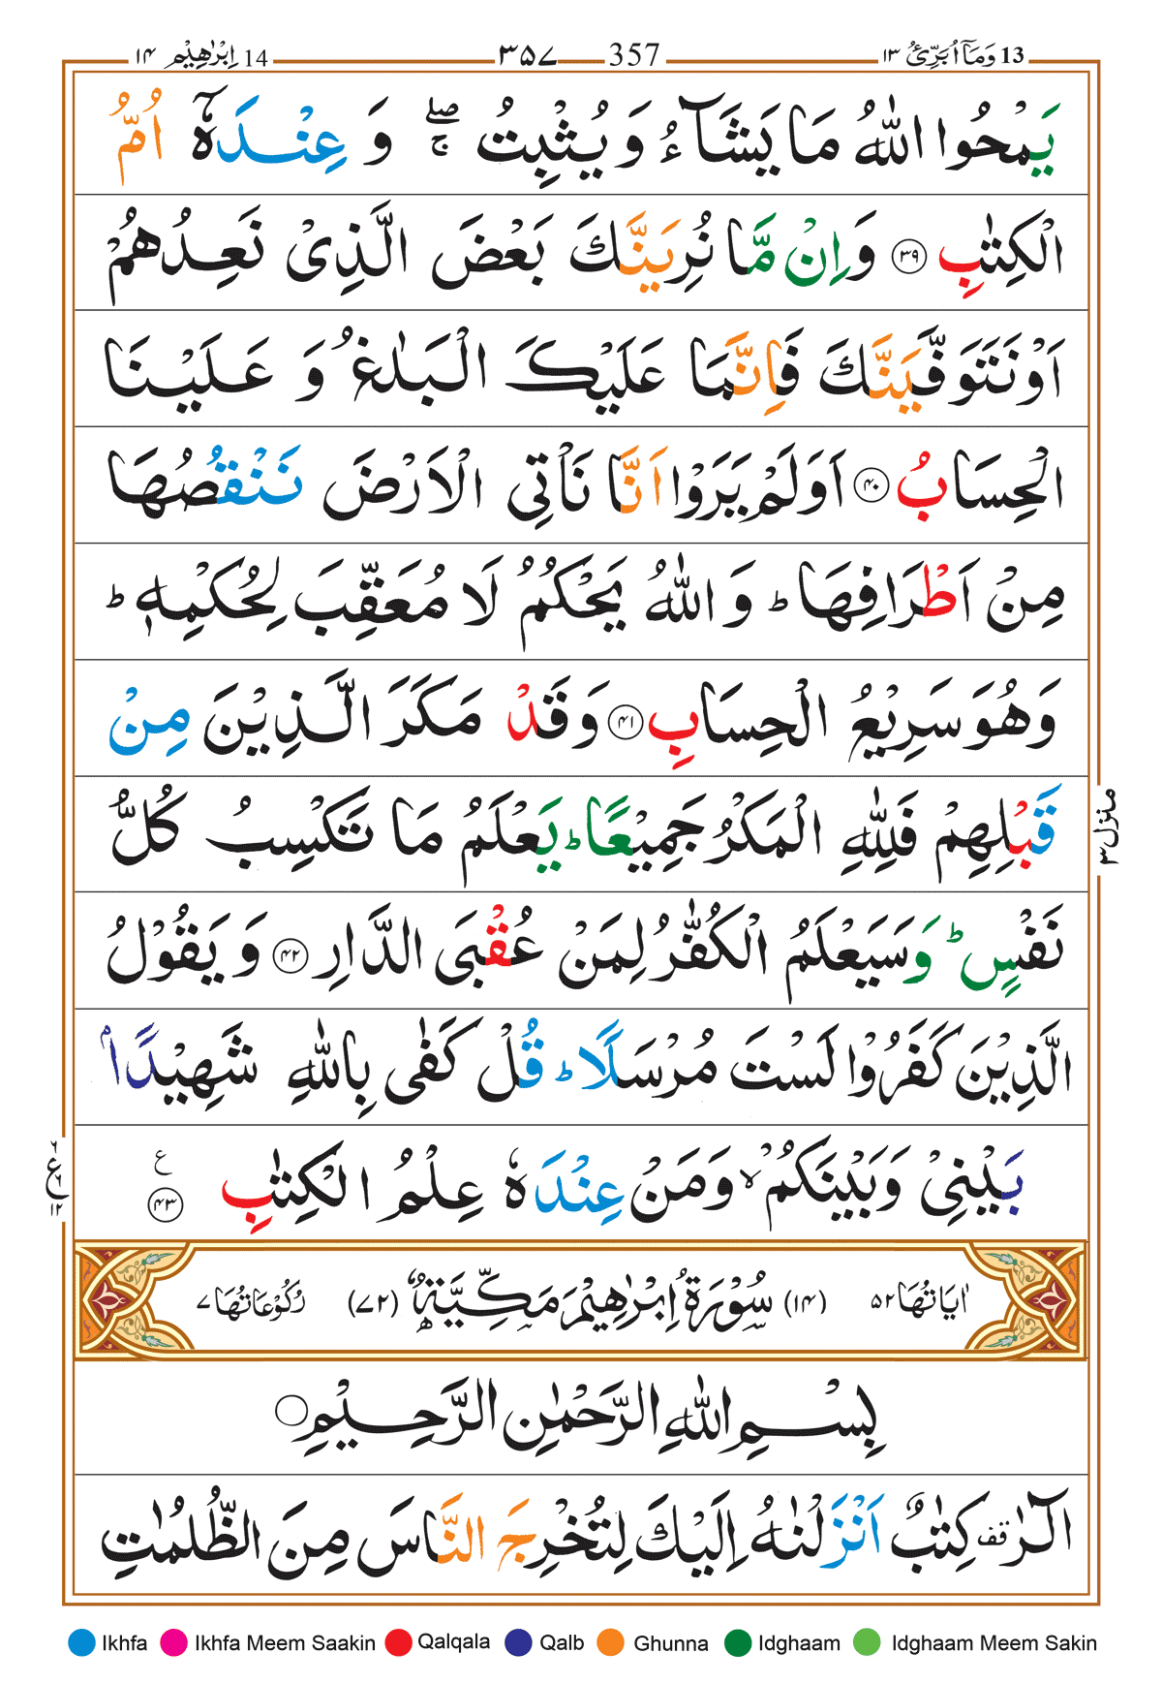 14 اِبْرٰهِيْم ١٤
٣٥٧ 357
13 وَمَاۤ اُبَرِّئُ ١٣
يَمْحُوا اللّٰهُ مَا يَشَآءُ وَ يُثْبِتُ ۖۚ وَ عِنْدَهٗۤ اُمُّ
الْكِتٰبِ ﴿٣٩﴾ وَاِنْ مَّا نُرِيَنَّكَ بَعْضَ الَّذِىْ نَعِدُهُمْ
اَوْ نَتَوَفَّيَنَّكَ فَاِنَّمَا عَلَيْكَ الْبَلٰغُ وَ عَلَيْنَا
الْحِسَابُ ﴿٤٠﴾ اَوَلَمْ يَرَوْا اَنَّا نَاْتِى الْاَرْضَ نَنْقُصُهَا
مِنْ اَطْرَافِهَا ؕ وَ اللّٰهُ يَحْكُمُ لَا مُعَقِّبَ لِحُكْمِهٖ ؕ
وَهُوَ سَرِيْعُ الْحِسَابِ ﴿٤١﴾ وَقَدْ مَكَرَ الَّذِيْنَ مِنْ
قَبْلِهِمْ فَلِلّٰهِ الْمَكْرُ جَمِيْعًا ؕ يَعْلَمُ مَا تَكْسِبُ كُلُّ
نَفْسٍ ؕ وَسَيَعْلَمُ الْكُفّٰرُ لِمَنْ عُقْبَى الدَّارِ ﴿٤٢﴾ وَ يَقُوْلُ
الَّذِيْنَ كَفَرُوْا لَسْتَ مُرْسَلًا ؕ قُلْ كَفٰى بِاللّٰهِ شَهِيْدًۢا
بَيْنِىْ وَبَيْنَكُمْ ۙ وَمَنْ عِنْدَهٗ عِلْمُ الْكِتٰبِ ﴿٤٣﴾ ع
منزل ٣
٦ ع ٦ ١٢
اٰيَاتُهَا ٥٢ (١٤) سُوْرَةُ اِبْرٰهِيْمَ مَكِّيَّةٌ (٧٢) رُكُوْعَاتُهَا ٧
بِسْمِ اللّٰهِ الرَّحْمٰنِ الرَّحِيْمِ
الٓرٰ قف كِتٰبٌ اَنْزَلْنٰهُ اِلَيْكَ لِتُخْرِجَ النَّاسَ مِنَ الظُّلُمٰتِ
Ikhfa Ikhfa Meem Saakin Qalqala Qalb Ghunna Idghaam Idghaam Meem Sakin